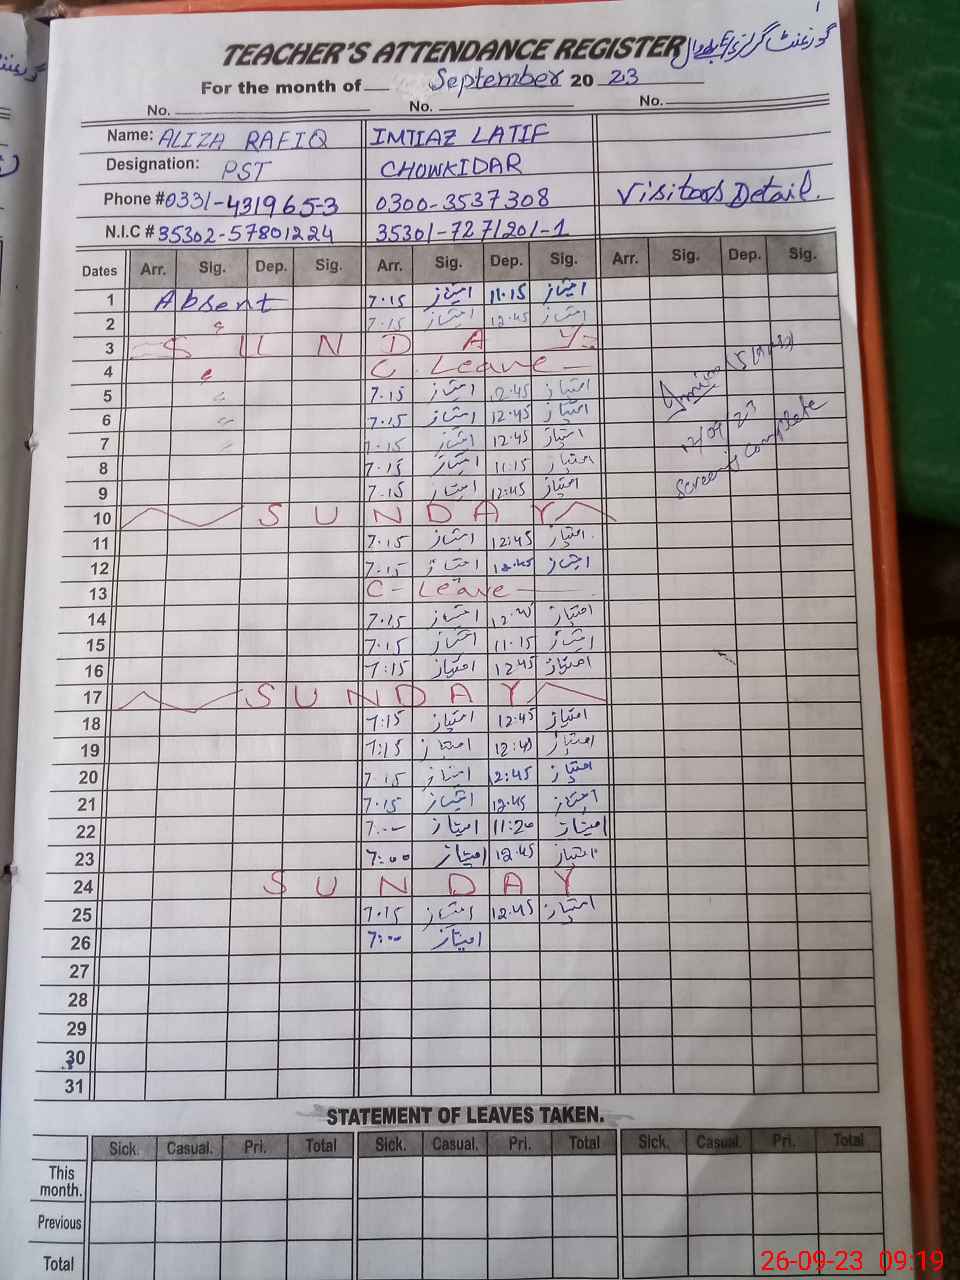 TEACHER'S ATTENDANCE REGISTER گورنمنٹ گرلز
For the month of September 2023
No. No. No.
Name: ALIZA RAFIQ IMTIAZ LATIF
Designation: PST CHOWKIDAR
Phone # 0331-4319653 0300-3537308 Visitors Detail.
N.I.C # 35302-57801224 35301-7271201-1
Dates Arr. Sig. Dep. Sig. Arr. Sig. Dep. Sig. Arr. Sig. Dep. Sig.
1 Absent 7.15 امتیاز 11.15 امتیاز
2 " 7.15 امتیاز 12.45 امتیاز
3 SUNDAY
4 " C. Leave
5 " 7.15 امتیاز 12.45 امتیاز
6 " 7.15 امتیاز 12.45 امتیاز
7 " 7.15 امتیاز 12.45 امتیاز
8 7.15 امتیاز 11.15 امتیاز
9 7.15 امتیاز 12.45 امتیاز
12/09/23
Screening complete
10 SUNDAY
11 7.15 امتیاز 12:45 امتیاز
12 7.15 امتیاز 12.45 امتیاز
13 C- Leave
14 7.15 امتیاز امتیاز
15 7.15 امتیاز 11.15 امتیاز
16 7:15 امتیاز 12:45 امتیاز
17 SUNDAY
18 7:15 امتیاز 12:45 امتیاز
19 7:15 امتیاز 12:45 امتیاز
20 7.15 امتیاز 12:45 امتیاز
21 7.15 امتیاز 12.45 امتیاز
22 7:00 امتیاز 11:20 امتیاز
23 7:00 امتیاز 12.45 امتیاز
24 SUNDAY
25 7.15 امتیاز 12.45 امتیاز
26 7:00 امتیاز
27
28
29
30
31
STATEMENT OF LEAVES TAKEN.
Sick. Casual. Pri. Total Sick. Casual. Pri. Total Sick. Casual. Pri. Total
This
month.
Previous
Total
26-09-23 09:19